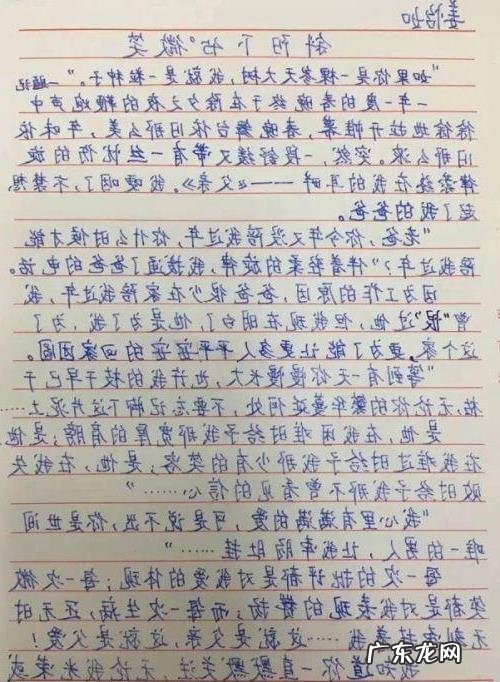 姜怡如
斜阳下的微笑
"如果你是一棵冬天大树,我就是一粒种子。"—题记
一年一度的春晚终于在除夕之夜的鞭炮声中
徐徐地拉开帷幕,春晚舞台依旧那么美,年味依
旧那么浓。突然,一段舒缓又带有一丝忧伤的旋
律萦绕在我的耳畔———《父亲》。我哽咽了,不禁想
起了我的爸爸。
"老爸,你今年又没陪我过年,你什么时候才能
陪我过年?"伴着轻柔的旋律,我拨通了爸爸的电话。
因为工作的原因,爸爸很少在家陪我过年,我
曾"恨"过他,但现在明白了,他是为了我,为了
这个家,更为了能让更多人平平安安的回家团圆。
"等到有一天你慢慢长大,也许我的枝干早已干
枯,无论你的繁华蔓延何处,不要忘记脚下这片泥土……
是他,在我困难时给予我那宽厚的肩膀;是他,
在我难过时给予我那少有的笑容;是他,在我失
败时给予我那不曾看见的信心……"
"我心里有满满的爱,可是说不出,你是世间
唯一的男人,让我牵肠肚挂……"
每一次的批评都是对我爱的体现;每一次微
笑都是对我表现的赞扬;而每一次生病,还无时
无刻牵挂着我……这就是父亲,这就是父爱!
我知道你一直默默关注,无论我未来成
广东龙网